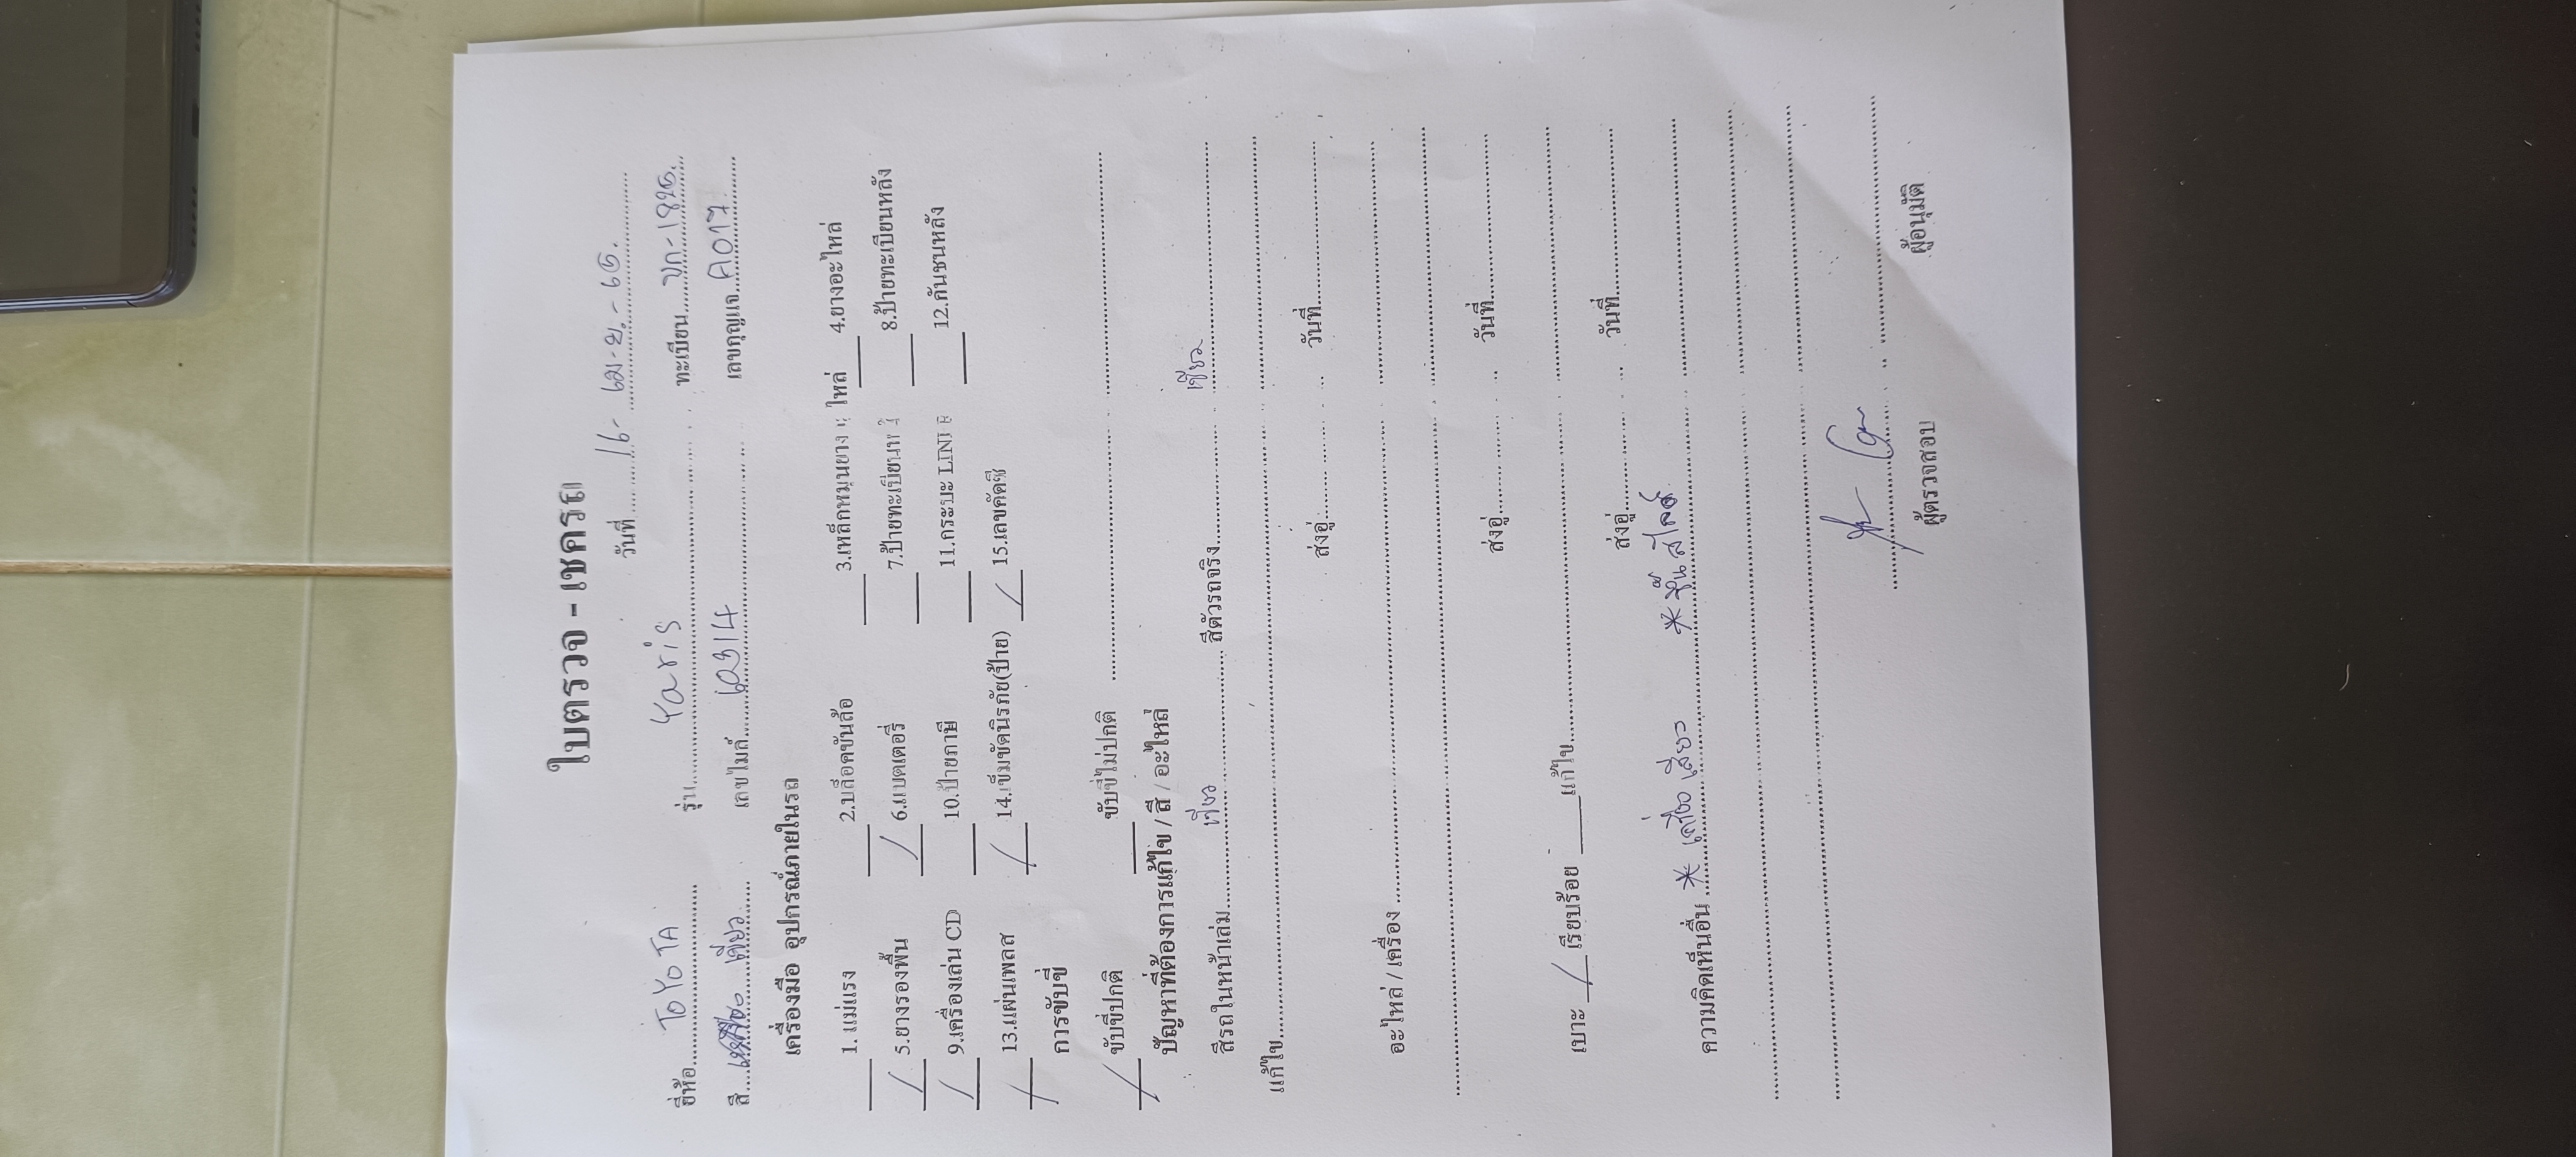 ใบตรวจ - เชครถ
วันที่ 16 - เม.ย. - 65.
ยี่ห้อ TOYOTA รุ่น Yaris ทะเบียน
สี เขียว เลขไมล์ เลขกุญแจ
เครื่องมือ อุปกรณ์ภายในรถ
1. แม่แรง 2.บล็อคขันล้อ 3.เหล็กหมุนยาง ไหล่ 4.ยางอะไหล่
/ 5.ยางรองพื้น / 6.แบตเตอรี่ 7.ป้ายทะเบียน 8.ป้ายทะเบียนหลัง
/ 9.เครื่องเล่น CD 10.ป้ายภาษี 11.กระบะ 12.กันชนหลัง
/ 13.แผ่นเพลส / 14.เข็มขัดนิรภัย(ป้าย) / 15.เลขคัตซี
การขับขี่
/ ขับขี่ปกติ ขับขี่ไม่ปกติ
ปัญหาที่ต้องการแก้ไข / สี / อะไหล่
สีรถในหน้าเล่ม เขียว สีตัวรถจริง เขียว
แก้ไข
ส่งอู่ วันที่
อะไหล่ / เครื่อง
ส่งอู่ วันที่
เบาะ / เรียบร้อย แก้ไข
ส่งอู่ วันที่
ความคิดเห็นอื่น *
ผู้ตรวจสอบ ผู้อนุมัติ